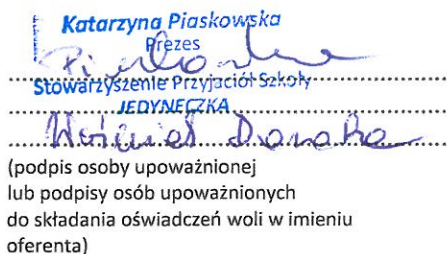 Katarzyna Piaskowska
Prezes
Stowarzyszenie Przyjaciół Szkoły
JEDYNECZKA
(podpis osoby upoważnionej
lub podpisy osób upoważnionych
do składania oświadczeń woli w imieniu
oferenta)